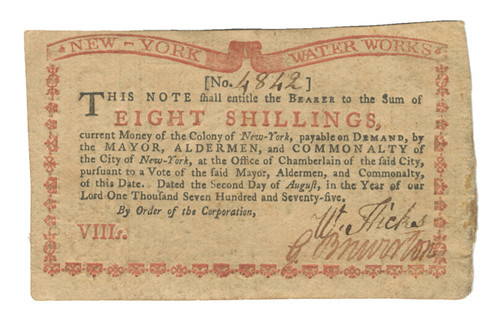 NEW-YORK WATER WORKS
[No. 4842]
THIS NOTE shall entitle the BEARER to the Sum of
EIGHT SHILLINGS,
current Money of the Colony of New-York, payable on DEMAND, by
the MAYOR, ALDERMEN, and COMMONALTY of
the City of New-York, at the Office of Chamberlain of the said City,
pursuant to a Vote of the said Mayor, Aldermen, and Commonalty,
of this Date. Dated the Second Day of August, in the Year of our
Lord One Thousand Seven Hundred and Seventy-five.
By Order of the Corporation,
Wt. Hicks
VIIIs.